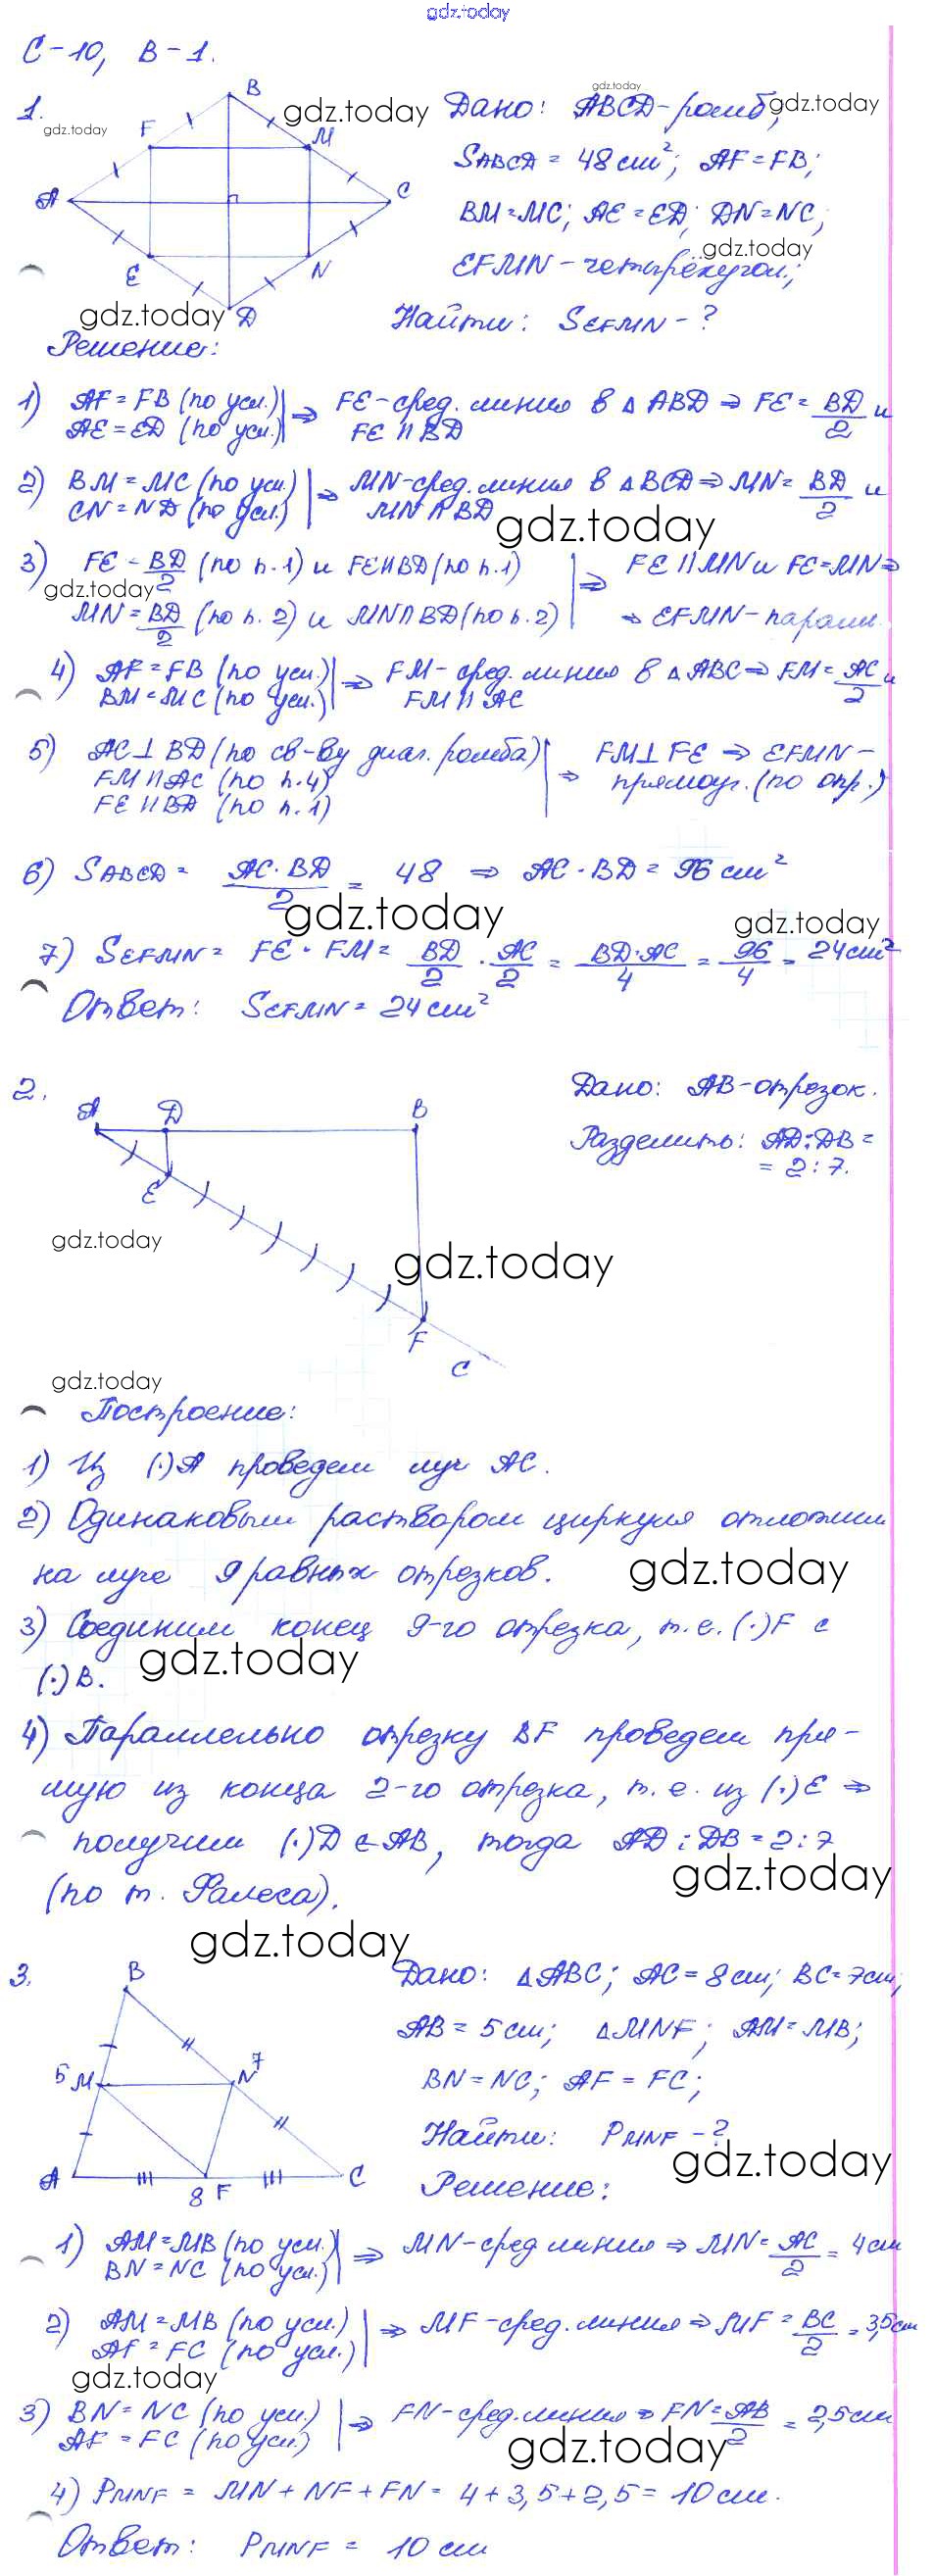 gdz.today
С-10, В-1.
1.
gdz.today
A F B M C N D E
Дано: ABCD-ромб,
SABCD = 48 см²; AF = FB;
BM = MC; AE = ED; DN = NC;
EFMN - четырёхугол.;
Найти: SEFMN - ?
Решение:
1) AF = FB (по усл.) | ⇒ FE - сред. линия в △ABD ⇒ FE = BD/2 и
AE = ED (по усл.) | FE || BD
2) BM = MC (по усл.) | ⇒ MN - сред. линия в △BCD ⇒ MN = BD/2 и
CN = ND (по усл.) | MN || BD
gdz.today
3) FE - BD/2 (по п. 1) и FE || BD (по п. 1) | ⇒ FE || MN и FE = MN ⇒
MN = BD/2 (по п. 2) и MN || BD (по п. 2) | ⇒ EFMN - паралл.
4) AF = FB (по усл.) | ⇒ FM - сред. линия в △ABC ⇒ FM = AC/2 и
BM = MC (по усл.) | FM || AC
5) AC ⊥ BD (по св-ву диаг. ромба) | ⇒ FM ⊥ FE ⇒ EFMN -
FM || AC (по п. 4) | прямоуг. (по опр.)
FE || BD (по п. 1)
6) SABCD = AC · BD/2 = 48 ⇒ AC · BD = 96 см²
gdz.today
7) SEFMN = FE · FM = BD/2 · AC/2 = BD·AC/4 = 96/4 = 24 см²
Ответ: SEFMN = 24 см²
2.
A D B E F C
Дано: AB - отрезок.
Разделить: AD : DB =
= 2 : 7.
gdz.today
Построение:
1) Из (·) A проведем луч AC.
2) Одинаковым раствором циркуля отложим
на луче 9 равных отрезков.
gdz.today
3) Соединим конец 9-го отрезка, т. е. (·) F с
(·) B.
gdz.today
4) Параллельно отрезку BF проведем пря-
мую из конца 2-го отрезка, т. е. из (·) E ⇒
получим (·) D ∈ AB, тогда AD : DB = 2 : 7
gdz.today
(по т. Фалеса).
gdz.today
3.
B 5 M N 7 A 8 F C
Дано: △ABC; AC = 8 см; BC = 7 см;
AB = 5 см; △MNF; AM = MB;
BN = NC; AF = FC;
Найти: PMNF - ?
gdz.today
Решение:
1) AM = MB (по усл.) | ⇒ MN - сред линия ⇒ MN = AC/2 = 4 см
BN = NC (по усл.) |
2) AM = MB (по усл.) | ⇒ MF - сред. линия ⇒ MF = BC/2 = 3,5 см
AF = FC (по усл.) |
gdz.today
3) BN = NC (по усл.) | ⇒ FN - сред. линия ⇒ FN = AB/2 = 2,5 см
AF = FC (по усл.) |
gdz.today
4) PMNF = MN + NF + FN = 4 + 3,5 + 2,5 = 10 см.
Ответ: PMNF = 10 см